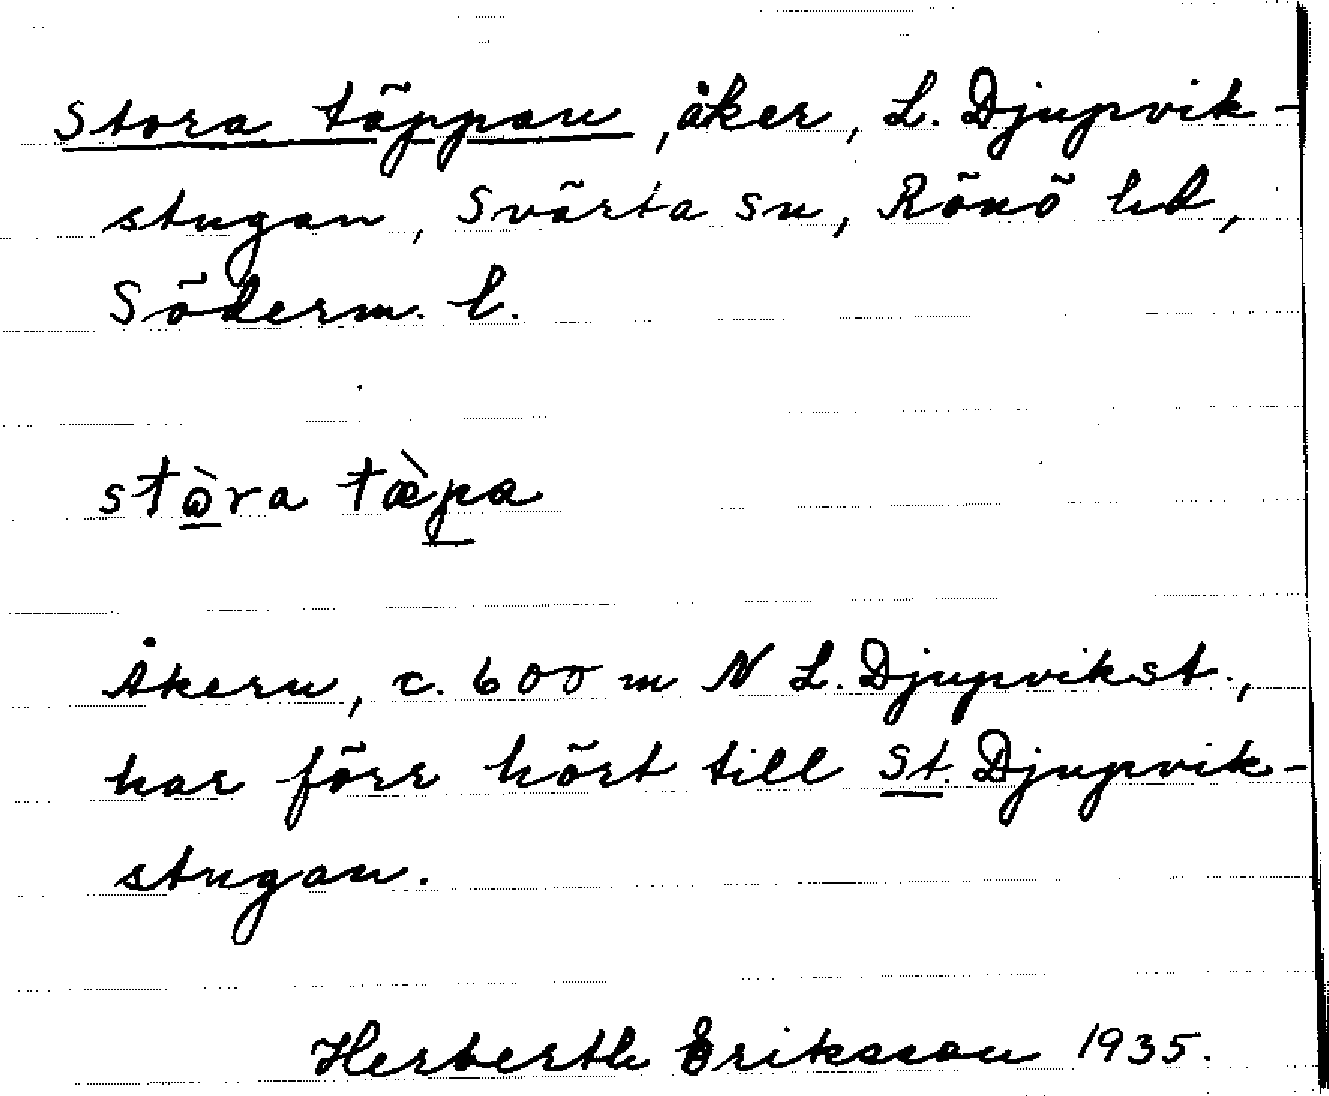 Stora täppan, åker, L. Djupvik-
stugan, Svärta sn, Rönö hd,
Söderm. l.
stὼra tæ̀pa
Åkern, c. 600 m N L. Djupvikst.,
har förr hört till St. Djupvik-
stugan.
Herberth Eriksson 1935.